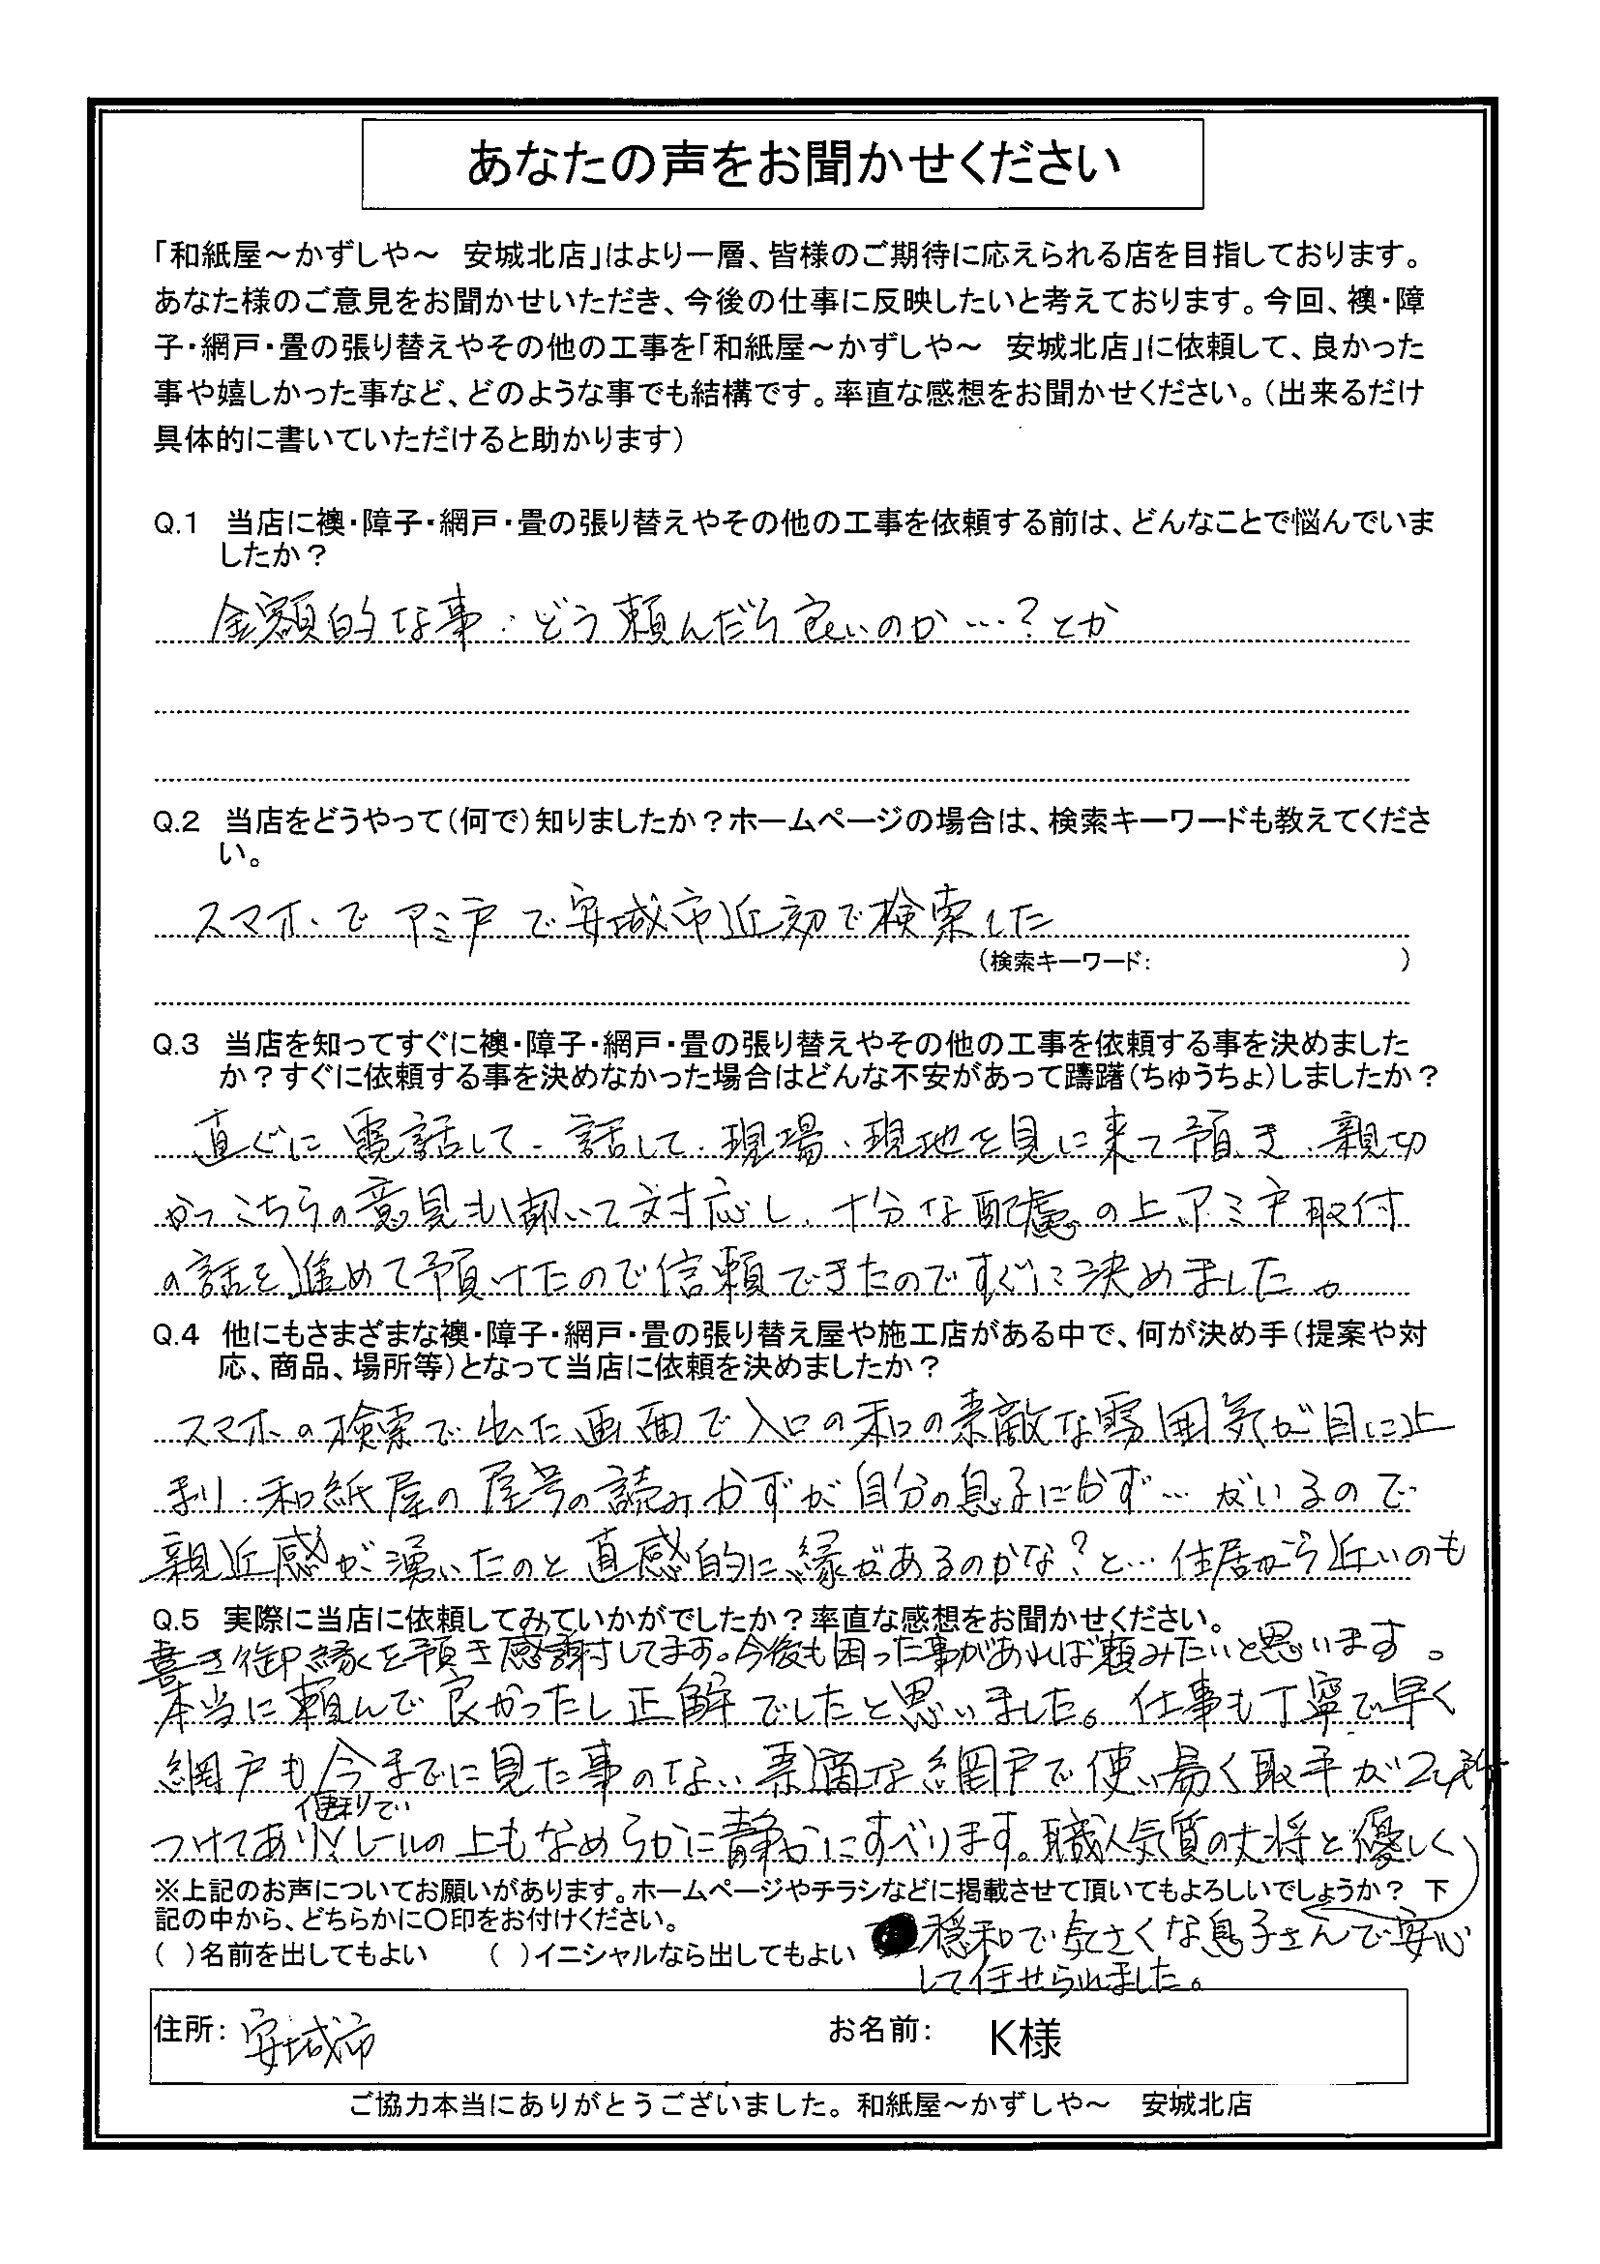 あなたの声をお聞かせください
「和紙屋～かずしや～　安城北店」はより一層、皆様のご期待に応えられる店を目指しております。
あなた様のご意見をお聞かせいただき、今後の仕事に反映したいと考えております。今回、襖・障
子・網戸・畳の張り替えやその他の工事を「和紙屋～かずしや～　安城北店」に依頼して、良かった
事や嬉しかった事など、どのような事でも結構です。率直な感想をお聞かせください。（出来るだけ
具体的に書いていただけると助かります）
Q.1　当店に襖・障子・網戸・畳の張り替えやその他の工事を依頼する前は、どんなことで悩んでいま
したか？
金額的な事．どう頼んだら良いのか…？とか
Q.2　当店をどうやって（何で）知りましたか？ホームページの場合は、検索キーワードも教えてくださ
い。
スマホで アミ戸で安城市近郊で検索した
（検索キーワード：　　　　　　）
Q.3　当店を知ってすぐに襖・障子・網戸・畳の張り替えやその他の工事を依頼する事を決めました
か？すぐに依頼する事を決めなかった場合はどんな不安があって躊躇（ちゅうちょ）しましたか？
直ぐに電話して、話して、現場、現地を見に来て頂き、親切
かつこちらの意見も聞いて対応し、十分な配慮の上、アミ戸取付
の話を進めて頂けたので信頼できたのですぐに決めました。
Q.4　他にもさまざまな襖・障子・網戸・畳の張り替え屋や施工店がある中で、何が決め手（提案や対
応、商品、場所等）となって当店に依頼を決めましたか？
スマホの検索で出た画面で入口の和の素敵な雰囲気が目に止
まり、和紙屋の屋号の読みかずが自分の息子にかず…がいるので
親近感が湧いたのと直感的に縁があるのかな？と…住居から近いのも
Q.5　実際に当店に依頼してみていかがでしたか？率直な感想をお聞かせください。
き御縁を頂き感謝してます。今後も困った事があれば頼みたいと思います。
本当に頼んで良かったし正解でしたと思いました。仕事も丁寧で早く
網戸も今までに見た事のない素適な網戸で使い易く取手が2ヶ所
便利で
つけてあり、レールの上もなめらかに静かにすべります。職人気質の大将と優しく
※上記のお声についてお願いがあります。ホームページやチラシなどに掲載させて頂いてもよろしいでしょうか？　下
記の中から、どちらかに○印をお付けください。
穏和で気さくな息子さんで安心
（　）名前を出してもよい　　（　）イニシャルなら出してもよい
して任せられました。
住所：安城市　　お名前：　K様
ご協力本当にありがとうございました。和紙屋～かずしや～　安城北店